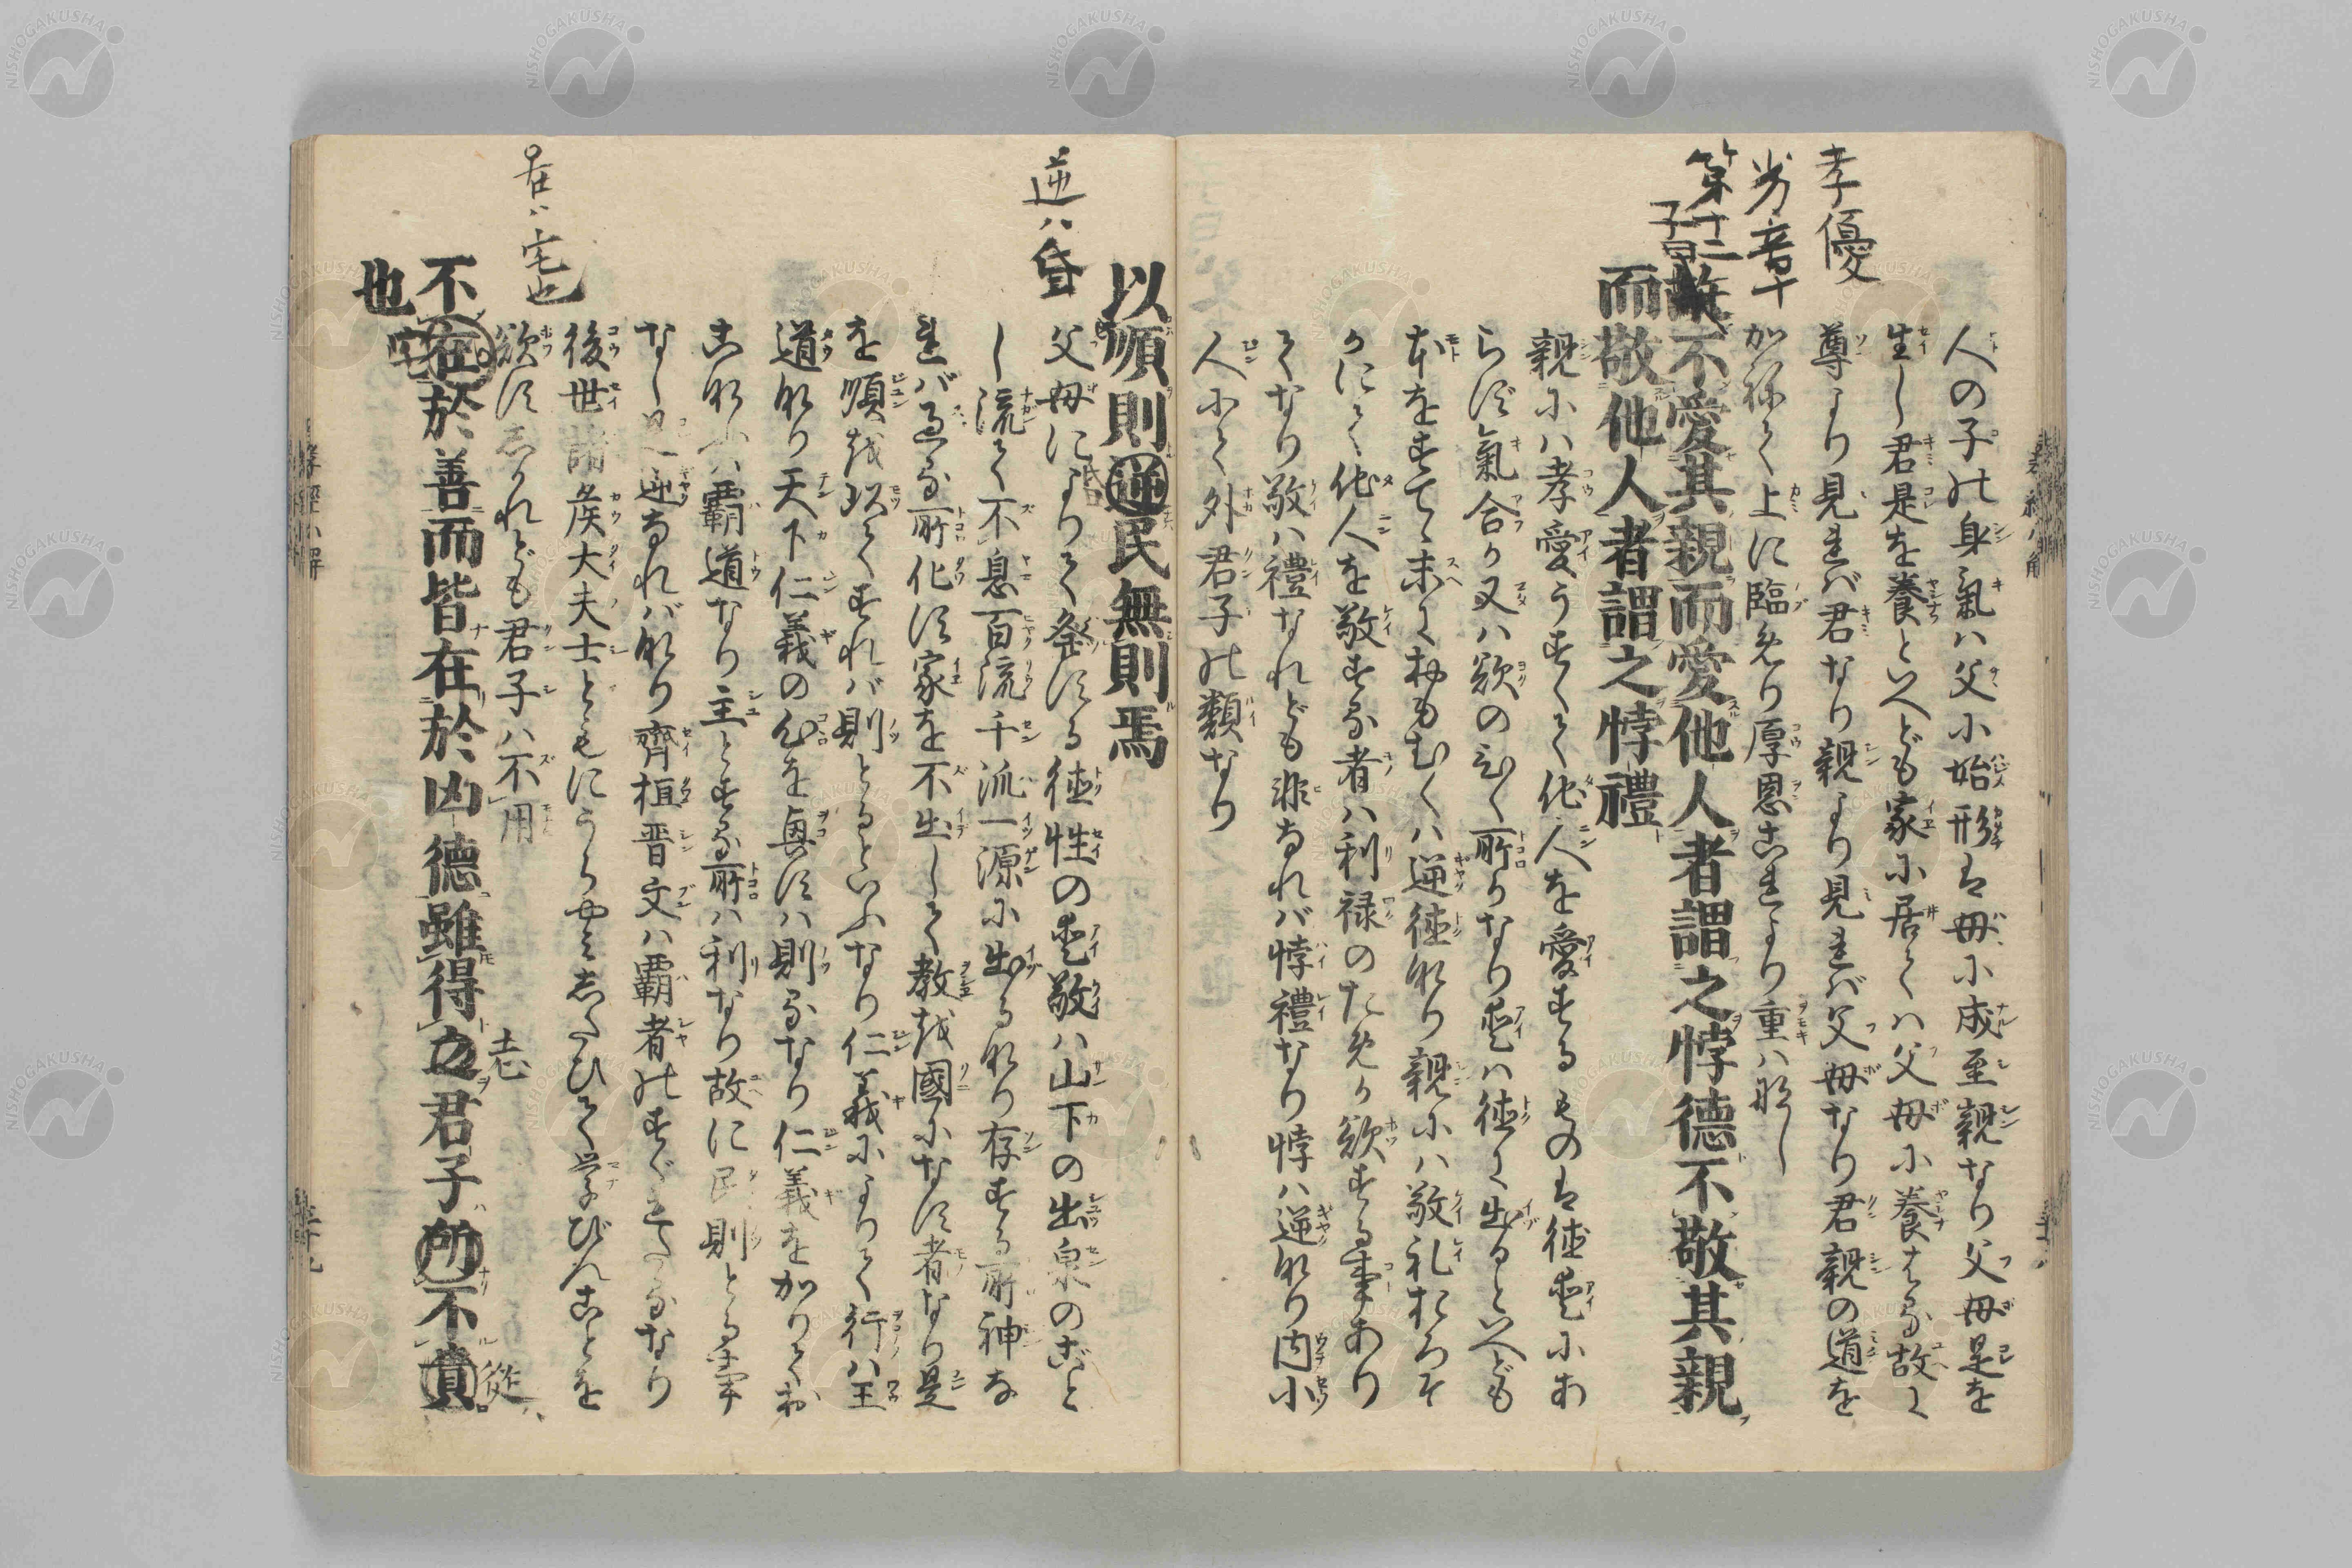 孝優
劣章十
第十二
子曰
人の子の身氣ハ父に始形は母に成至親なり父母是を
生し君是を養といへども家に居てハ父母に養はる故に
尊より見れバ君なり親より見れバ父母なり君親の道を
加ねて上に臨めり厚恩これより重ハなし
故不愛其親而愛他人者謂之悖德不敬其親
而敬他人者謂之悖禮
親にハ孝愛うすくて他人を愛するものは徳愛にあ
らず氣合か又ハ欲の
所かなり愛ハ徳に出るといへども
本をすてゝ末におもむくハ逆徳なり親にハ敬礼おろそ
かにて他人を敬する者ハ利禄のためか欲する事あり
てなり敬ハ禮なれども非なれバ悖禮なり悖ハ逆なり内小
人にて外君子の類なり
逆ハ昏
以順則逆民無則焉
昏
父母によりて発する徳性の愛敬ハ山下の出泉のごと
し流て不息百流千派一源に出るなり存する所神な
れバ過る所化す家を不出して教を國になす者なり是
を順を以てすれバ則とるといふなり仁義によりて行ハ王
道なり天下仁義の心を興すハ則るなり仁義を加りてお
こなふハ覇道なり主とする所ハ利なり故に民則とる事
なし是逆なれバなり齊桓晋文ハ覇者のすぐれたるなり
後世諸侯大夫士ともにうらやみしたひて学びんことを
欲すしかれども君子ハ不用
在ハ宅也
不在於善而皆在於凶德雖得之君子所不貴
宅
志
從
也